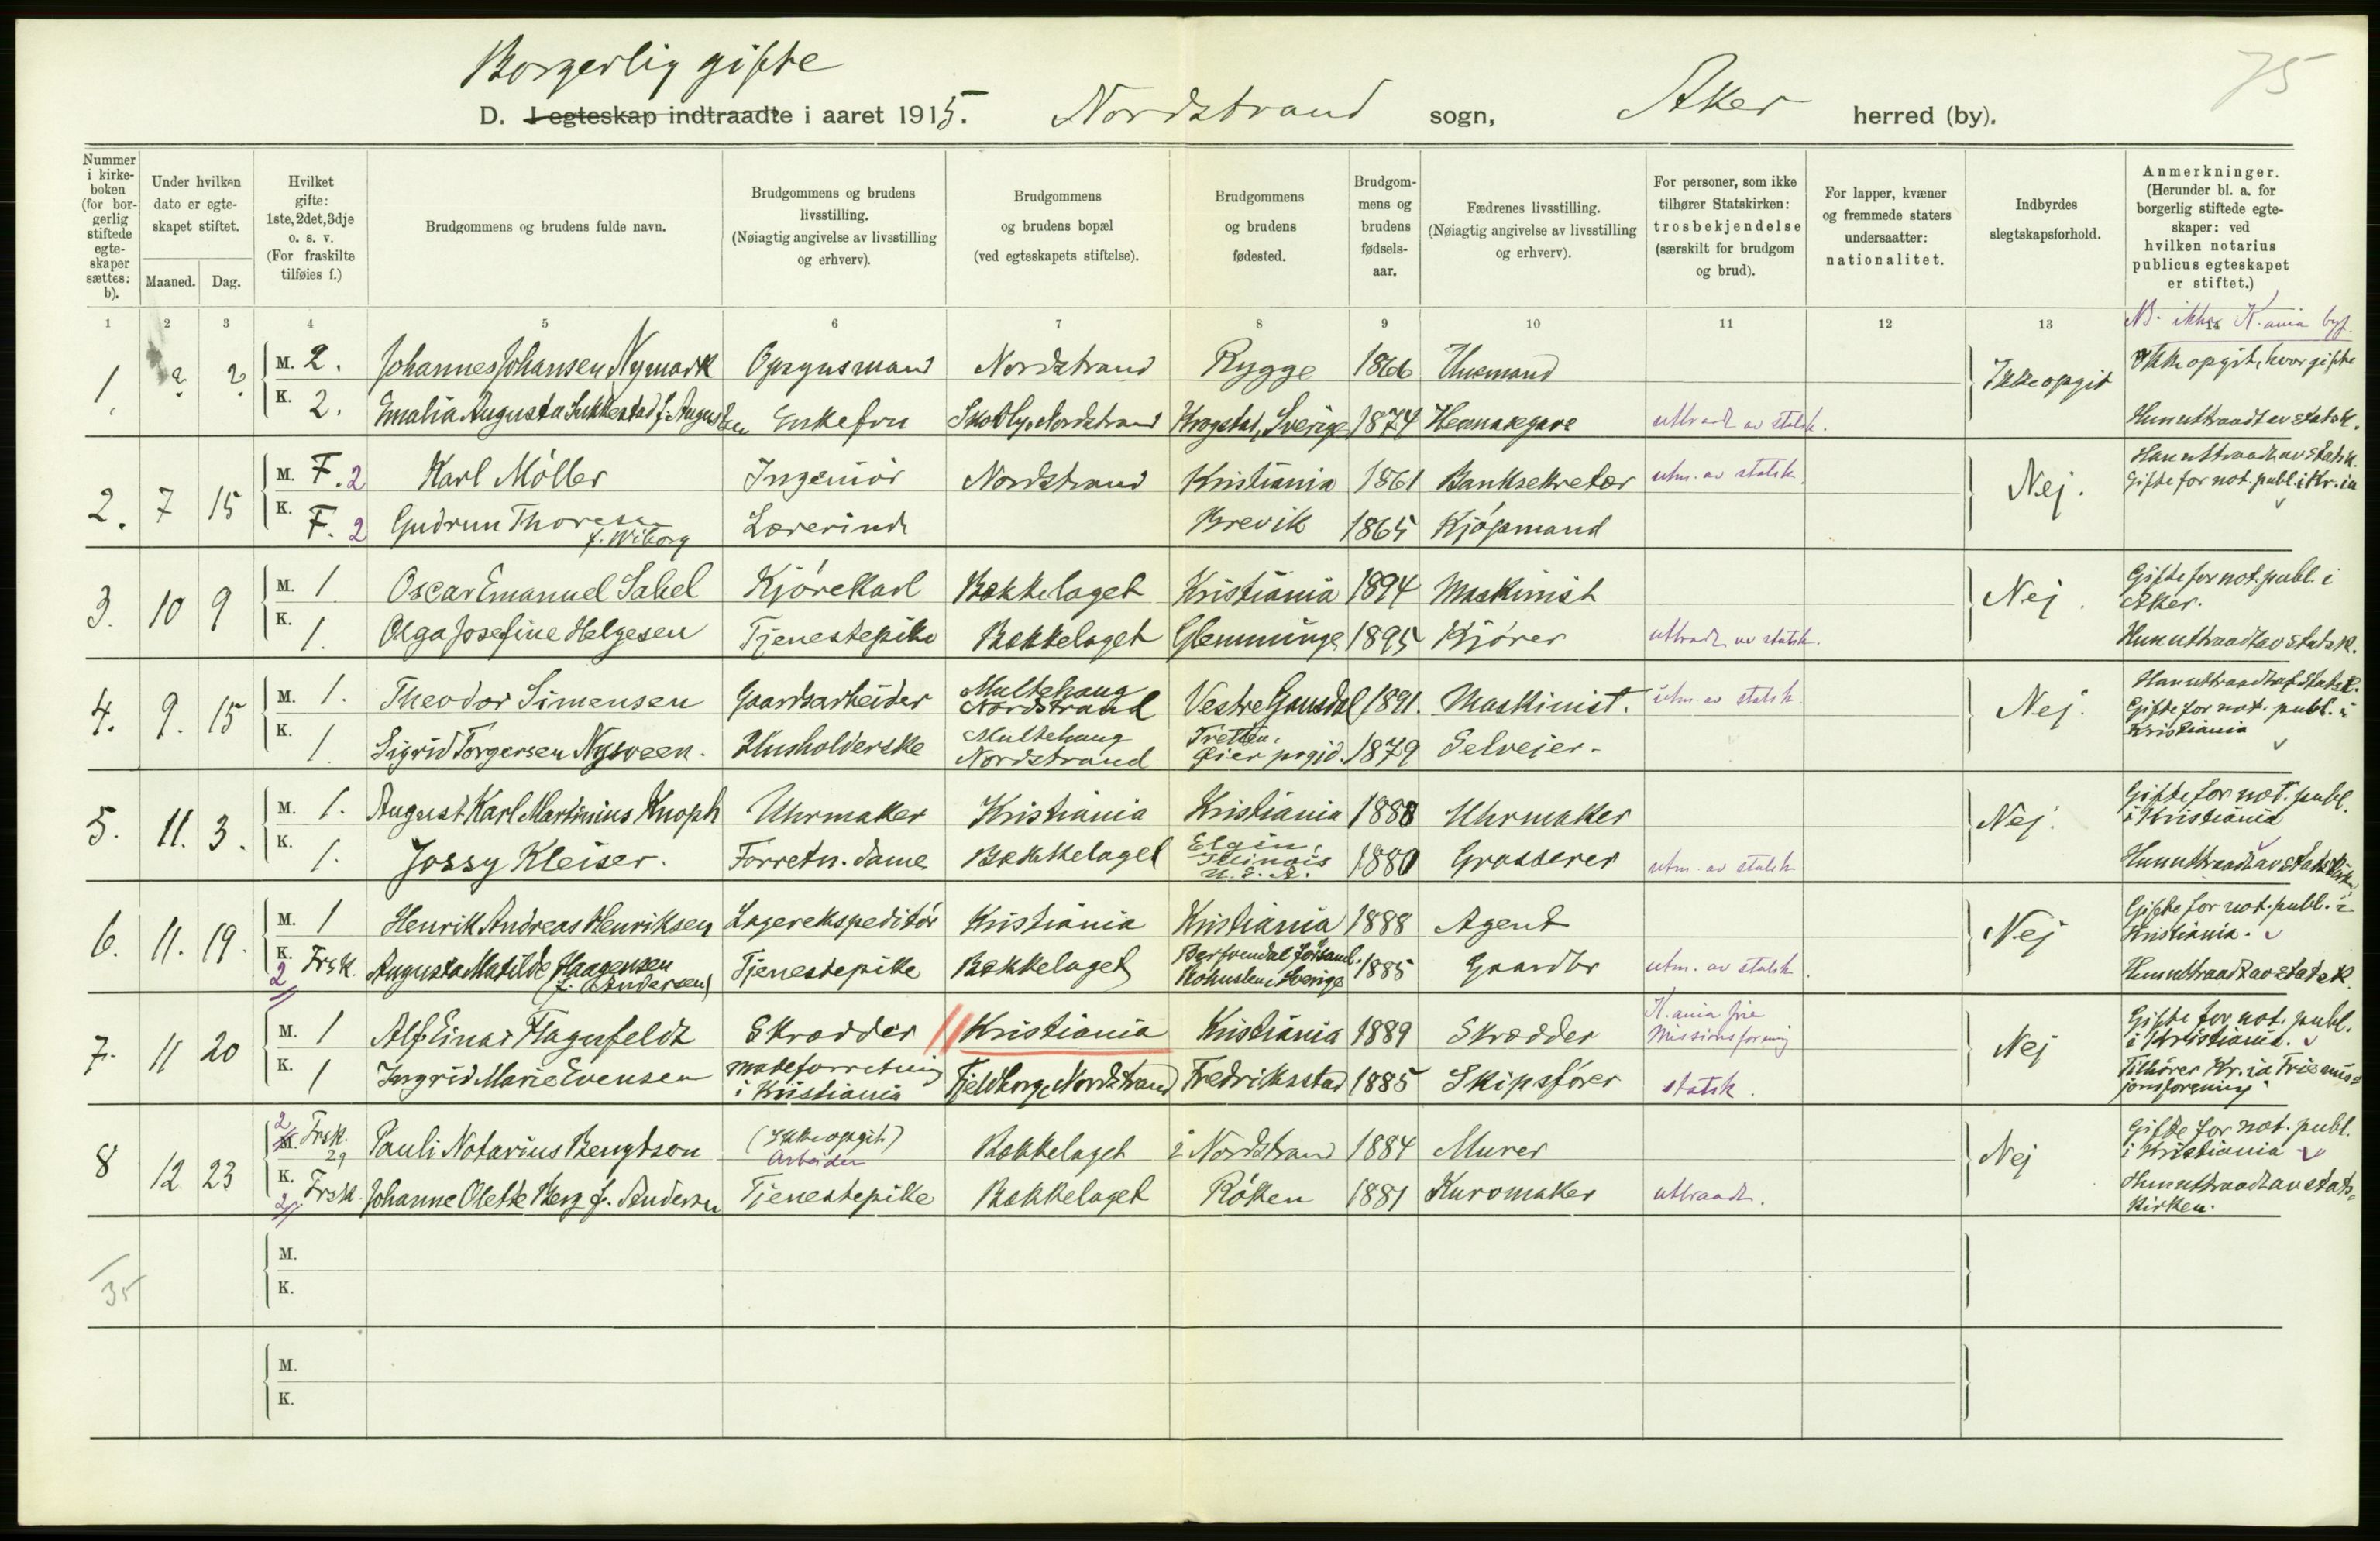 Borgerlig gifte
75
D. I egteskap indtraadte i aaret 1915. Nordstrand sogn, Aker herred (by).
Nummer i kirke-boken (for bor-gerlig stiftede egte-skaper sættes: b).
Under hvilken dato er egte-skapet stiftet.
Maaned. Dag.
Hvilket gifte: 1ste, 2det, 3dje o. s. v. (For fraskilte tilføies f.)
Brudgommens og brudens fulde navn.
Brudgommens og brudens livsstilling. (Nøiagtig angivelse av livsstilling og erhverv).
Brudgommens og brudens bopæl (ved egteskapets stiftelse).
Brudgommens og brudens fødested.
Brudgom-mens og brudens fødsels-aar.
Fædrenes livsstilling. (Nøiagtig angivelse av livsstilling og erhverv).
For personer, som ikke tilhører Statskirken: trosbekjendelse (særskilt for brudgom og brud).
For lapper, kvæner og fremmede staters undersaatter: nationalitet.
Indbyrdes slegtskapsforhold.
Anmerkninger. (Herunder bl. a. for borgerlig stiftede egte-skaper: ved hvilken notarius publicus egteskapet er stiftet.)
1 2 3 4 5 6 7 8 9 10 11 12 13 14
NB. ikke K.ania byf.
1. ? ? M. 2. Johannes Johansen Nymark Opsynsmand Nordstrand Rygge 1866 Husmand Ikke opgit Ikke opgit, hvor gifte
K. 2. Emalia Augusta Sukkestad f. Augustsen Enkefru Skotby, Nordstrand Krogstad, Sverige 1874 Hemmansegare uttraadt av statsk. Hun uttraadt av statsk.
2. 7 15 M. F. 2 Karl Möller Ingeniör Nordstrand Kristiania 1861 Banksekretær utm. av statsk. Nej. Han uttraadt av statsk. Gifte for not. publ. i Kr.ia
K. F. 2 Gudrun Thoresen f. Wiborg Lærerinde Brevik 1865 Kjöpmand
3. 10 9 M. 1 Oscar Emanuel Sahel Kjörekarl Bækkelaget Kristiania 1894 Maskinist Nej. Gifte for not. publ. i Aker.
K. 1. Olga Josefine Helgesen Tjenestepike Bækkelaget Glemminge 1895 Kjörer uttraadt av statsk. Hun uttraadt av statsk.
4. 9. 15 M. 1. Theodor Simensen Gaardsarbeider Multehaug Nordstrand Vestre Gausdal 1891. Maskinist. utm. av statsk. Nej. Han uttraadt af statsk. Gifte for not. publ. i Kristiania
K. 1 Sigrid Torgersen Nysveen. Husholderske Multehaug Nordstrand Tretten, Øier prgjd. 1879 Selveier.
5. 11. 3. M. 1. August Karl Martinius Knoph Uhrmaker Kristiania Kristiania 1888 Uhrmaker Nej. Gifte for not. publ. i Kristiania
K. 1. Jossy Kleiser. Forretn. dame Bækkelaget Elgin, Illinois U. S. A. 1880 Grosserer utm. av statsk Hun uttraadt av Statskirken
6. 11. 19. M. 1 Henrik Andreas Henriksen Lagerekspeditör Kristiania Kristiania 1888 Agent Nej Gifte for not. publ. i Kristiania.
K. 2 Frsk. Augusta Matilde Haagensen (f. Andersen) Tjenestepike Bækkelaget Bohuslen, Sverige 1885 Gaardbr utm. av statsk. Hun uttraadt av statsk.
7. 11 20 M. 1 Alf Einar Hagnfeldt Skrædder Kristiania Kristiania 1889 Skrædder K.ania frie Missionsforning Nej Gifte for not. publ. i Kristiania.
K. 1 Ingrid Marie Evensen Moteforretning i Kristiania Fjeldborg, Nordstrand Fredriksstad 1885 Skipsförer statsk. Tilhörer Kr.ia Frie misjonsforening
8 12 23 M. 2 Frsk. 29 Pauli Notarius Bengtson (Ikke opgit) Arbeider Bækkelaget i Nordstrand 1884 Murer Nej Gifte for not. publ. i Kristiania
K. 2 Frsk. Johanne Olette Berg f. Andersen Tjenestepike Bækkelaget Röken 1881 Kurvmaker uttraadt. Hun uttraadt av statskirken.
M.
K.
35
M.
K.